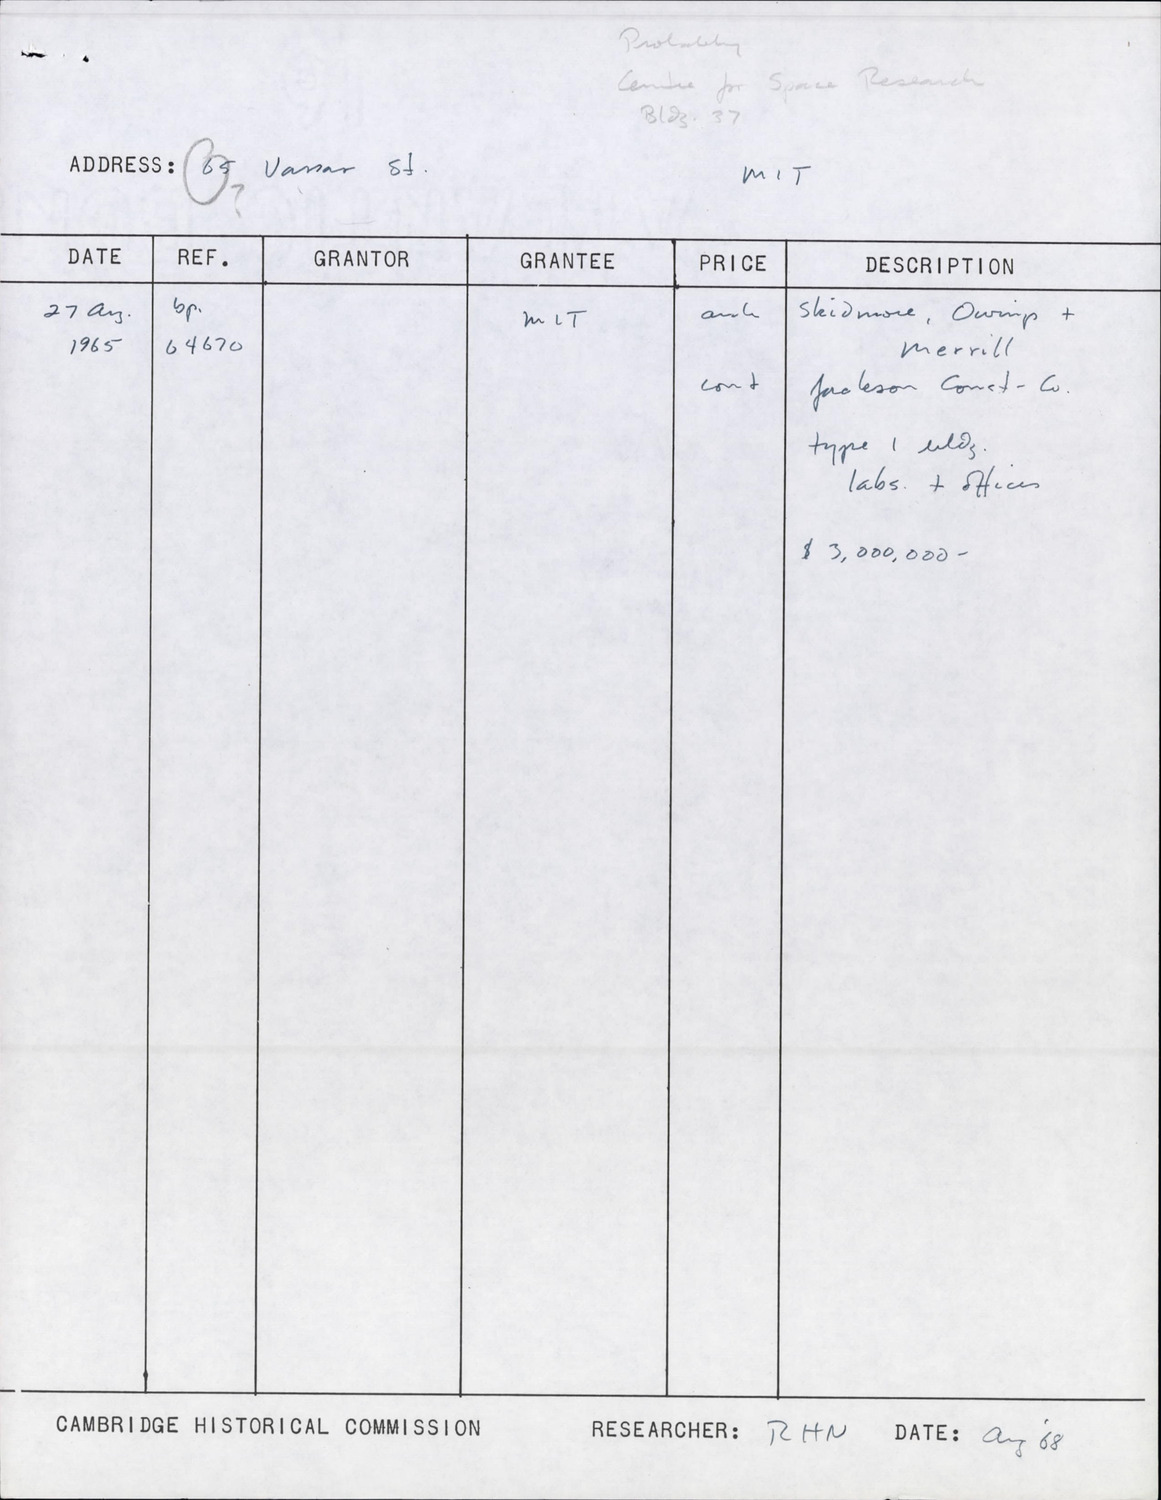 Probably
Centre for Space Research
Bldg. 37
ADDRESS: 65 Vassar St. MIT
?
DATE REF. GRANTOR GRANTEE PRICE DESCRIPTION
27 Aug. bp. MIT arch Skidmore, Owings +
1965 64670 Merrill
cont Jackson Const. Co.
type 1 bldg.
labs. + offices
$ 3,000,000-
CAMBRIDGE HISTORICAL COMMISSION RESEARCHER: RHN DATE: Aug '68